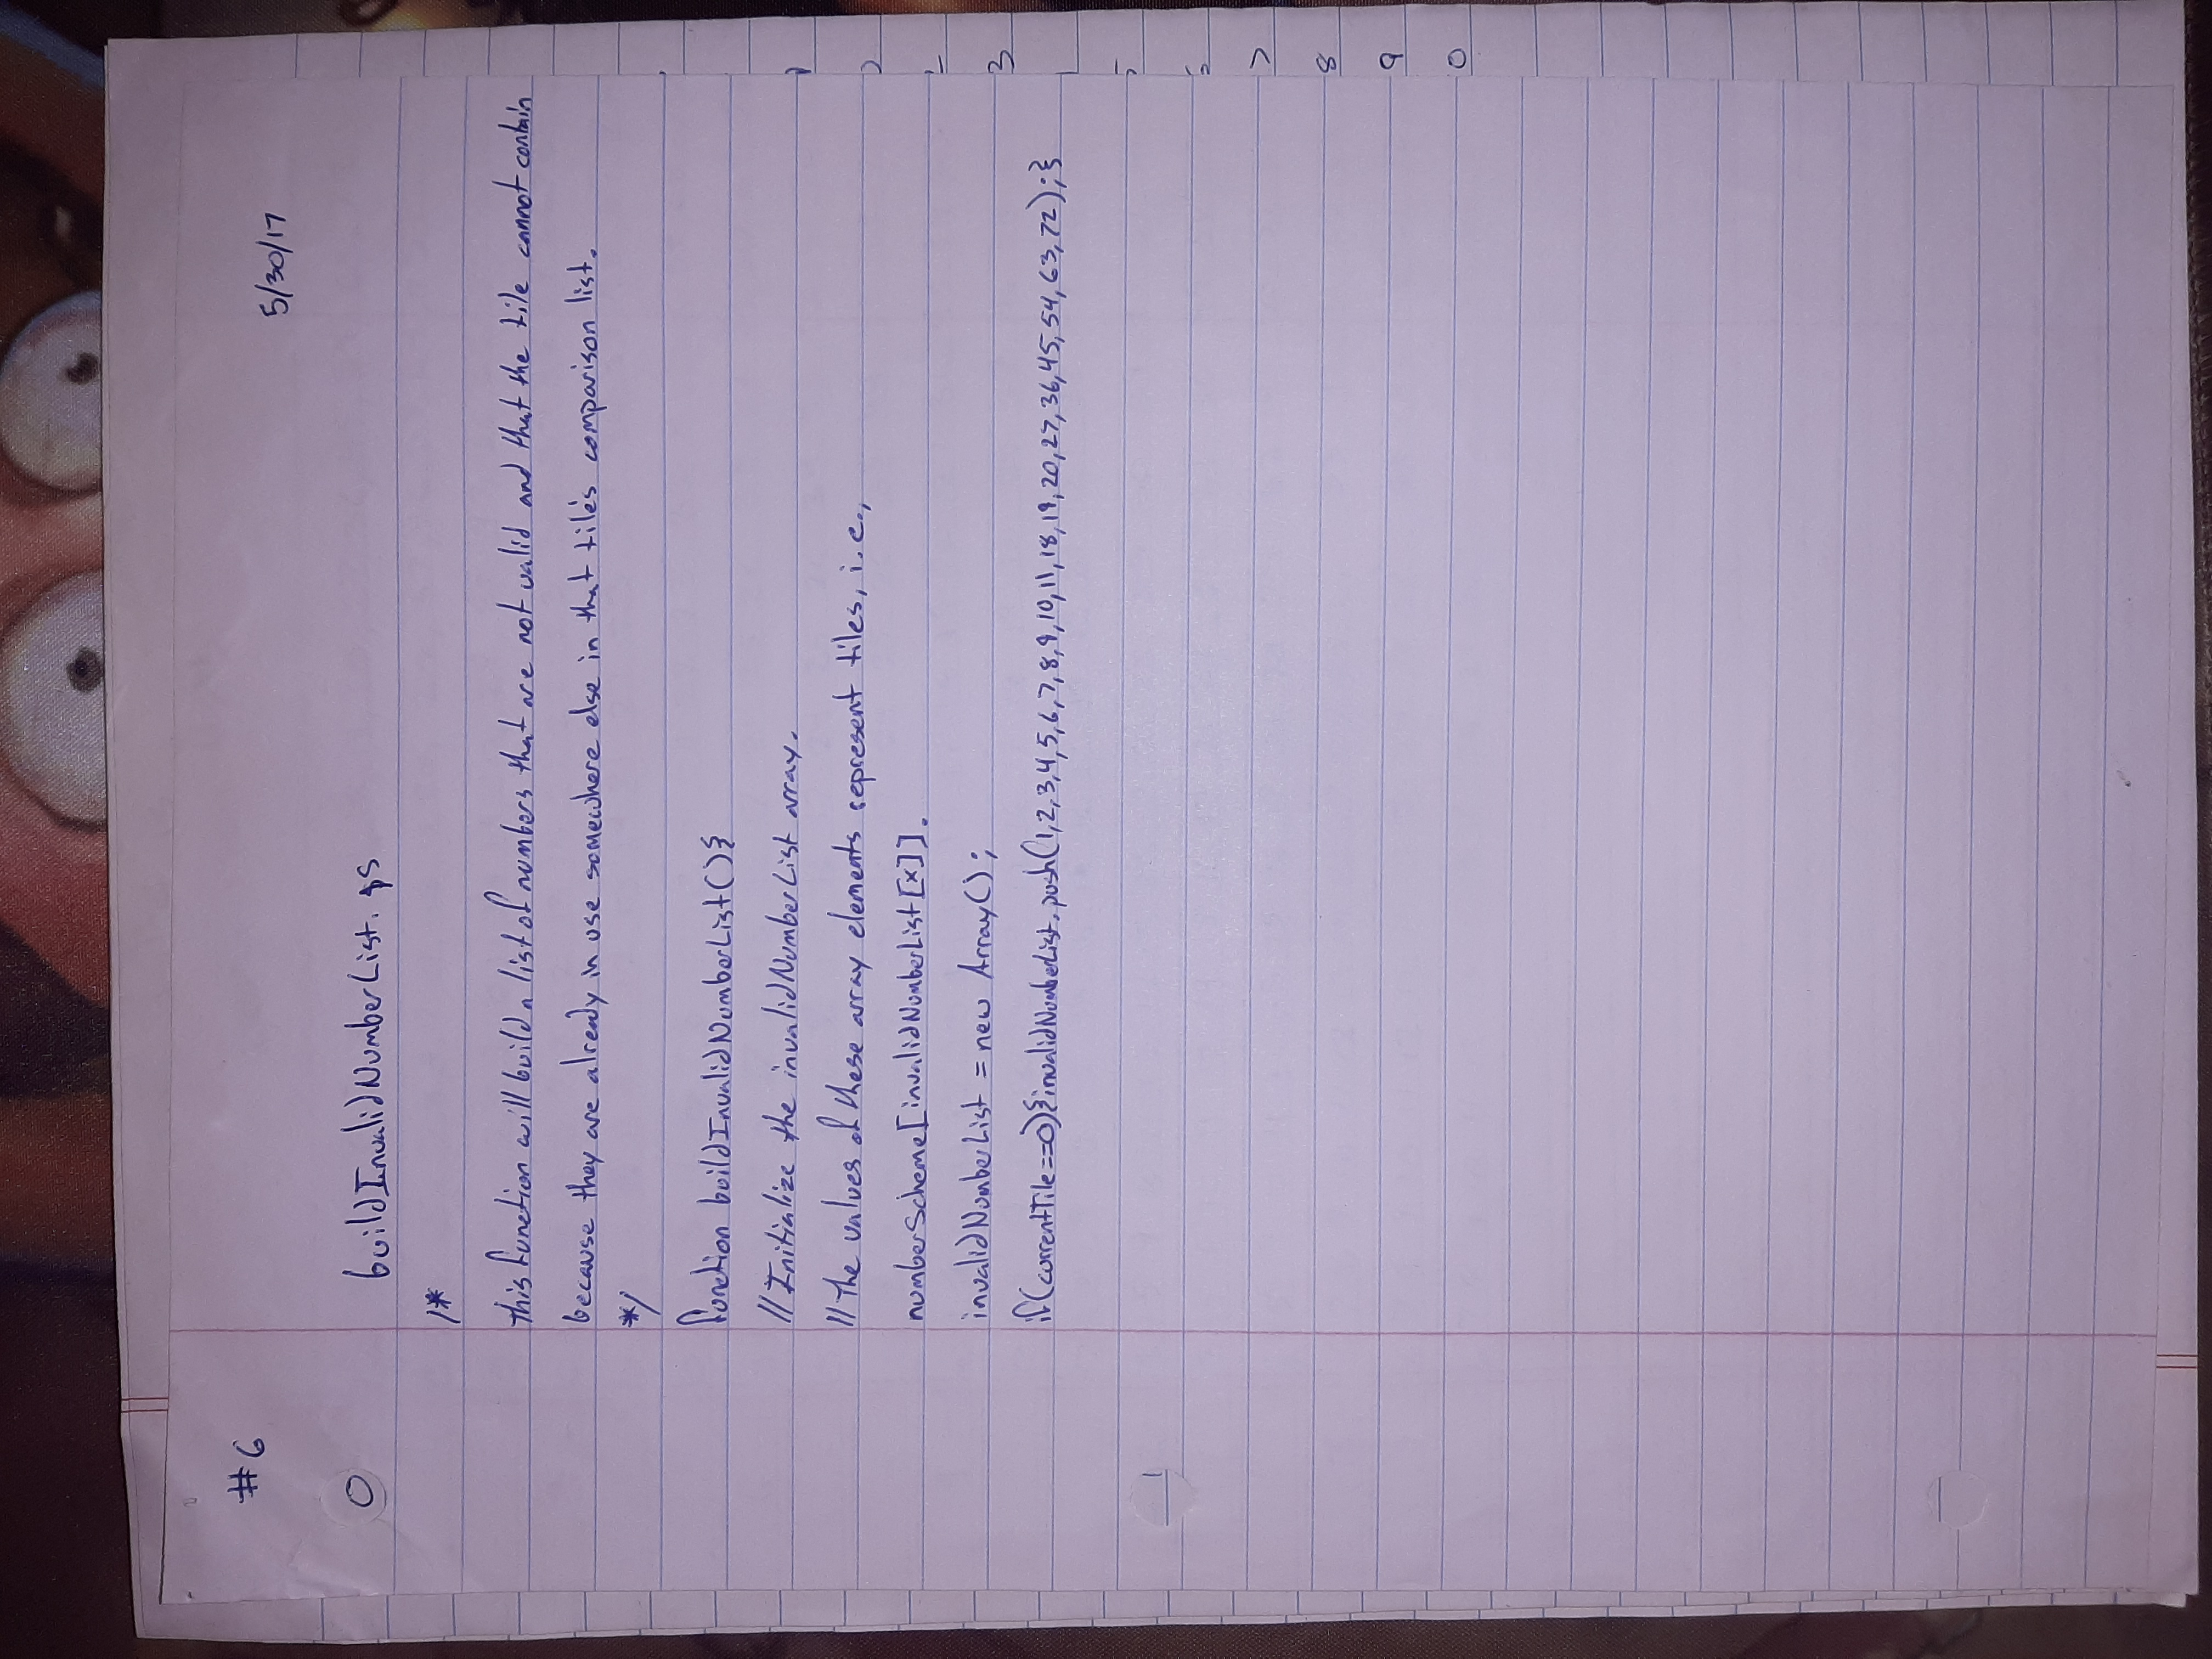 #6
5/30/17
buildInvalidNumberList.js
/*
This function will build a list of numbers that are not valid and that the tile cannot contain
because they are already in use somewhere else in that tile's comparison list.
*/
function buildInvalidNumberList(){
//Initialize the invalidNumberList array.
//The values of these array elements represent tiles, i.e.,
numberScheme[invalidNumberList[x]].
invalidNumberList = new Array();
if(currentTile==0){invalidNumberList.push(1,2,3,4,5,6,7,8,9,10,11,18,19,20,27,36,45,54,63,72);}
3
8
9
0